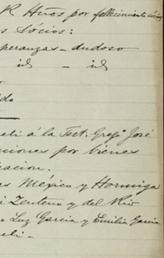 R Hños por fallecimiento
os Sócios:
peranzas - dudoso
id - id
do
eli á la Test. Gregº José
niones por bienes
cacion.
es Mexico y Hormiga
i Zenteno y del Rio
e Luz Garcia y Emilia Garcia
eli.